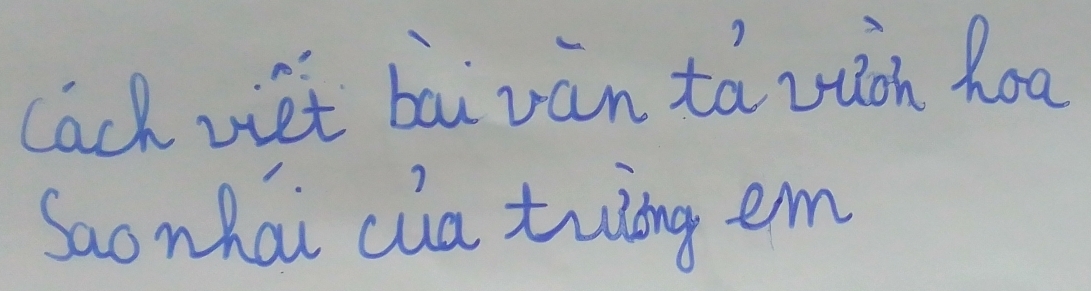 Cách viết bài văn tả vườn hoa
Sao nhái của trường em